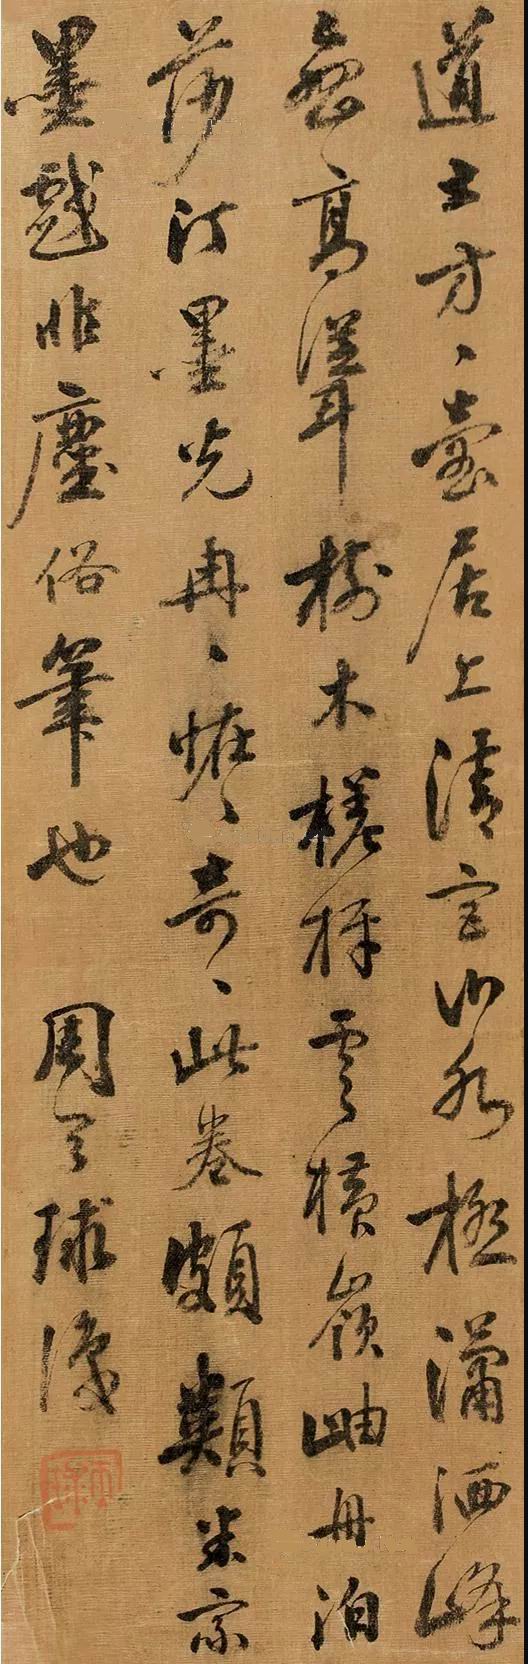 道士方方壺居上清宮山水極瀟洒峰
巒高聳樹木槎枒雲橫嶺岫舟泊
莎汀墨光冉冉怪怪奇奇此卷頗類米家
墨戲非塵俗筆也 周天球識